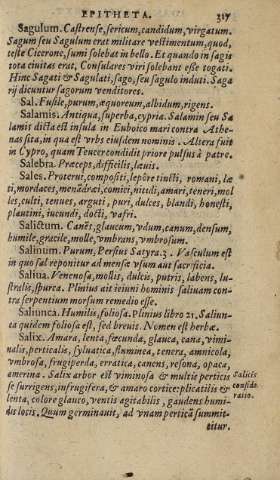 EPITHETA. 317
Sagulum. Castrense, sericum, candidum, virgatum.
Sagum seu Sagulum erat militare vestimentum, quod,
teste Cicerone, sumi solebat in bello. Et quando in sagis
tota ciuitas erat, Consulares viri solebant esse togati.
Hinc Sagati & Sagulati, sago, seu sagulo induti. Saga
rij dicuntur sagorum venditores.
Sal. Fusile, purum, æquoreum, albidum, rigens.
Salamis. Antiqua, superba, cypria. Salamin seu Sa
lamis dicta est insula in Euboico mari contra Athe-
nas sita, in qua est vrbs eiusdem nominis. Altera fuit
in Cypro, quam Teucer condidit priore pulsus à patre.
Salebra. Præceps, difficilis, lauit.
Sales. Proterui, compositi, lepôre tincti, romani, læ
ti, mordaces, menãdræi, comici, nitidi, amari, teneri, mol
les, culti, tenues, arguti, puri, dulces, blandi, honesti,
plautini, iucundi, docti, vafri.
Salictum. Canēs, glaucum, vdum, canum, densum,
humile, gracile, molle, vmbrans, vmbrosum.
Salinum. Purum, Persius Satyra. 3. Vasculum est
in quo sal reponitur ad mensæ vsum aut sacrificia.
Saliua. Venenosa, mollis, dulcis, putris, labens, lu-
stralis, spurca. Plinius ait ieiuni hominis saliuam con-
tra serpentium morsum remedio esse.
Saliunca. Humilis, foliosa. Plinius libro 21. Saliun-
ca quidem foliosa est, sed breuis. Nomen est herbæ.
Salix. Amara, lenta, fœcunda, glauca, cana, vimi-
nalis, perticalis, syluatica, fluminea, tenera, amnicola,
vmbrosa, frugiperda, erratica, canens, resona, opaca,
amerina. Salix arbor est viminosa & multis perticis
se surrigens, infrugifera, & amaro cortice: plicatilis &
lenta, colore glauco, ventis agitabilis, gaudens humi-
dis locis. Quum germinauit, ad vnam perticã summit-
titur.
Salicis
consyde
ratio.